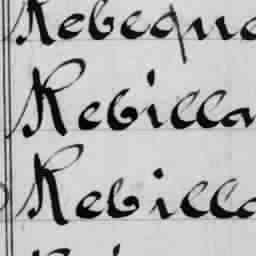 Rebeque
Rebilla
Rebilla